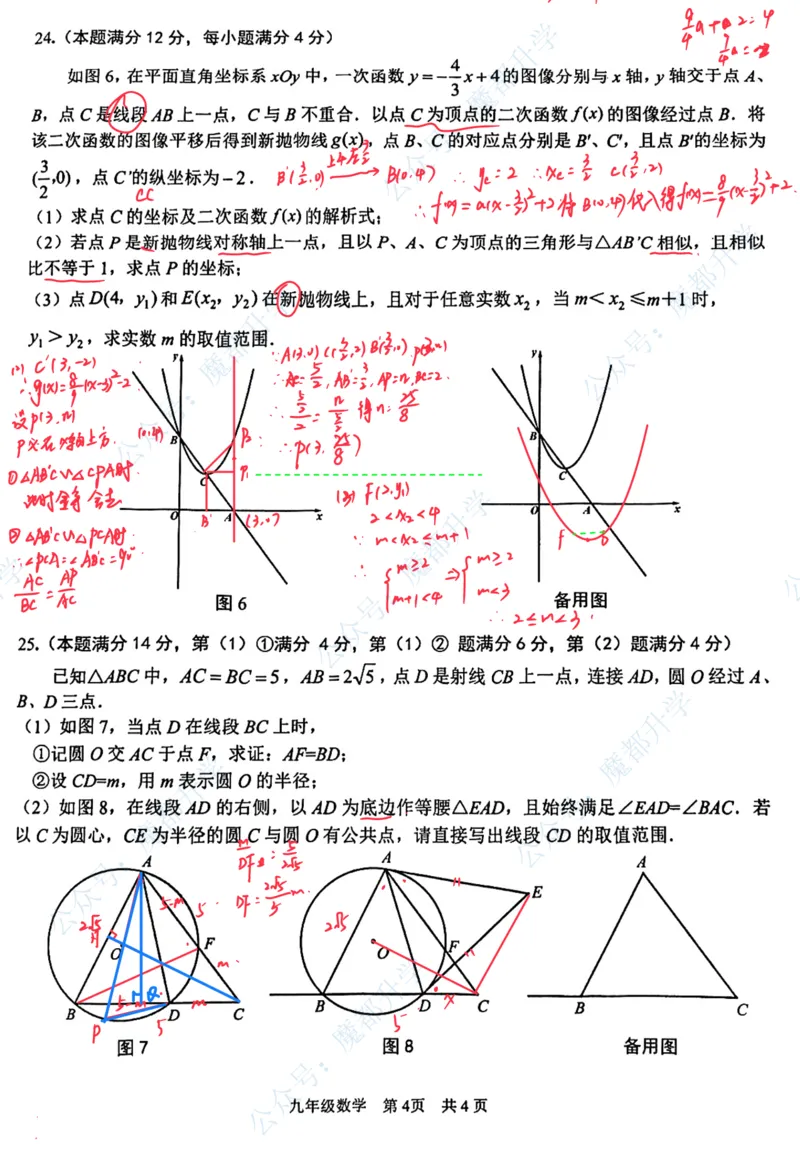 9/4a+a·2=4
24.（本题满分 12 分，每小题满分 4 分）
如图 6，在平面直角坐标系 xOy 中，一次函数 y=-4/3x+4 的图像分别与 x 轴，y 轴交于点 A、
B，点 C 是线段 AB 上一点，C 与 B 不重合．以点 C 为顶点的二次函数 f(x) 的图像经过点 B．将
该二次函数的图像平移后得到新抛物线 g(x)，点 B、C 的对应点分别是 B′、C′，且点 B′的坐标为
(3/2,0)，点 C′的纵坐标为-2．
B'(3/2,0) → B(0,4) ∴ yc=2 ∴xc=3/2 C(3/2,2)
∴f(x)=a(x-3/2)²+2 将B(0,4)代入得f(x)=8/9(x-3/2)²+2.
（1）求点 C 的坐标及二次函数 f(x) 的解析式；
（2）若点 P 是新抛物线对称轴上一点，且以 P、A、C 为顶点的三角形与△AB′C 相似，且相似
比不等于 1，求点 P 的坐标；
（3）点 D(4, y₁) 和 E(x₂, y₂) 在新抛物线上，且对于任意实数 x₂，当 m< x₂ ≤m+1 时，
y₁ > y₂，求实数 m 的取值范围．
(2) C'(3,-2)
∴g(x)=8/9(x-3)²-2
设P(3,n)
P只在x轴上方.
①△AB'C∽△CPA时
②△AB'C∽△PCA时
∴∠PCA=∠AB'C=90°
AC/BC=AP/AC
∴A(3,0) C(3/2,2) B'(3/2,0) P(3,n)
∴AC=5/2, AB'=3/2, AP=n, B'C=2.
得n=25/8
∴P(3,25/8)
(3) F(2,y₁)
2<x₂<4
∵ m<x₂≤m+1
∴ {m≥2 m+1<4 ⇒ {m≥2 m<3
∴ 2≤m<3.
y
(0,4)
B
P
C
P₁
O
B'
A
(3,0)
x
图 6
y
B
C
O
A
x
F
D
备用图
25.（本题满分 14 分，第（1）①满分 4 分，第（1）② 题满分 6 分，第（2）题满分 4 分）
已知△ABC 中，AC=BC=5，AB=2√5，点 D 是射线 CB 上一点，连接 AD，圆 O 经过 A、
B、D 三点．
（1）如图 7，当点 D 在线段 BC 上时，
①记圆 O 交 AC 于点 F，求证：AF=BD；
②设 CD=m，用 m 表示圆 O 的半径；
（2）如图 8，在线段 AD 的右侧，以 AD 为底边作等腰△EAD，且始终满足∠EAD=∠BAC．若
以 C 为圆心，CE 为半径的圆 C 与圆 O 有公共点，请直接写出线段 CD 的取值范围．
m/DF=5/2√5
DF=2√5/5m.
A
5-m
5
2√5
H
O
F
m
B
5-m
Q
D
m
C
P
5
图 7
A
E
2√5
O
F
B
D
x
C
5
图 8
A
B
C
备用图
九年级数学 第 4页 共 4 页
公众号：魔都升学